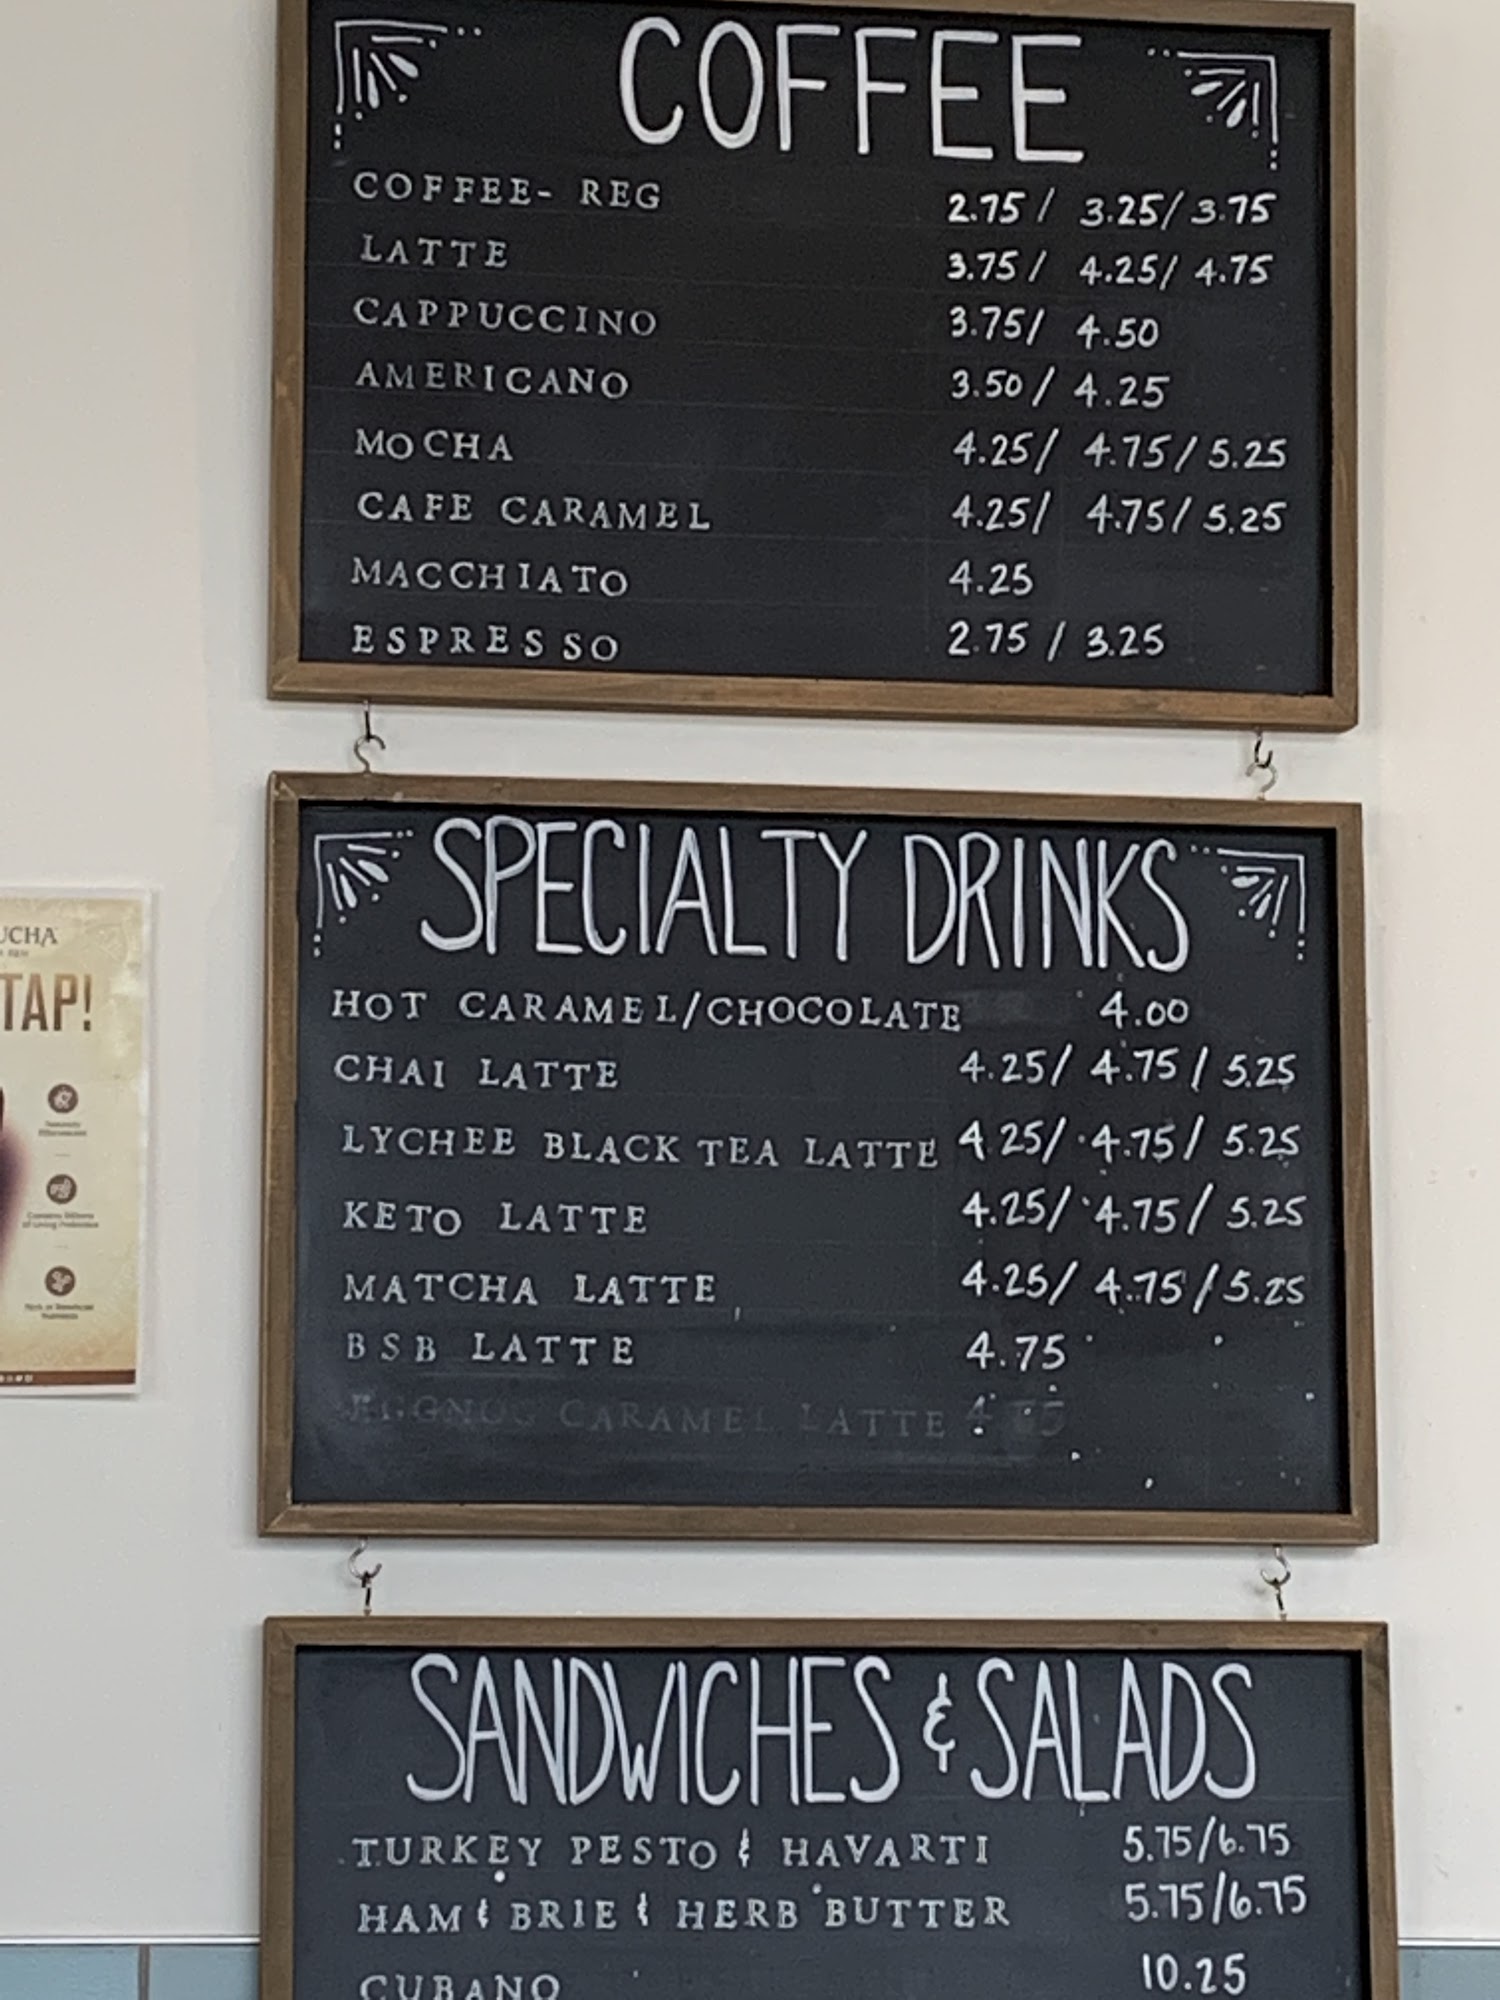 COFFEE
COFFEE- REG 2.75 / 3.25/ 3.75
LATTE 3.75 / 4.25/ 4.75
CAPPUCCINO 3.75/ 4.50
AMERICANO 3.50 / 4.25
MOCHA 4.25/ 4.75 / 5.25
CAFE CARAMEL 4.25/ 4.75/ 5.25
MACCHIATO 4.25
ESPRESSO 2.75 / 3.25
SPECIALTY DRINKS
HOT CARAMEL/CHOCOLATE 4.00
CHAI LATTE 4.25/ 4.75 / 5.25
LYCHEE BLACK TEA LATTE 4.25/ 4.75/ 5.25
KETO LATTE 4.25/ 4.75/ 5.25
MATCHA LATTE 4.25/ 4.75/ 5.25
BSB LATTE 4.75
EGGNOG CARAMEL LATTE 4.75
UCHA
TAP!
SANDWICHES & SALADS
TURKEY PESTO & HAVARTI 5.75/6.75
HAM & BRIE & HERB BUTTER 5.75/6.75
CUBANO 10.25